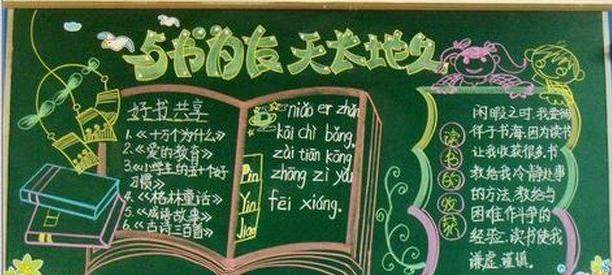 与书为友 天长地久
好书共享
1.《十万个为什么》
2.《爱的教育》
3.《小学生的五十个好
习惯》
4.《格林童话》
5.《成语故事》
6.《古诗三百首》
niǎo er zhǎn
kāi chì bǎng,
zài tiān kōng
zhōng zì yóu
fēi xiáng.
Pīn
Yīn
读书的收获
闲暇之时,我爱徜
徉于书海,因为读书
让我收获很多.书
教给我冷静处事
的方法,教给与
困难作斗争的
经验.读书使我
谦虚、谨慎.